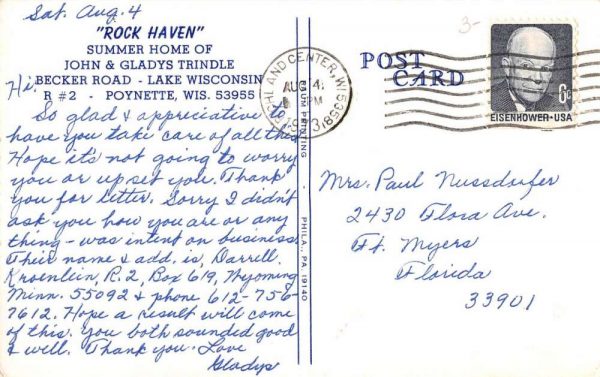 Sat. Aug. 4
"ROCK HAVEN"
SUMMER HOME OF
JOHN & GLADYS TRINDLE
BECKER ROAD - LAKE WISCONSIN
R #2 - POYNETTE, WIS. 53955
Hi.
So glad & appreciative to
have you take care of all this
Hope it's not going to worry
you or upset you. Thank
you for letter. Sorry I didn't
ask you how you are or any
thing - was intent on business
Their name & add. is, Darrell
Kroenlein, R.2, Box 619, Wyoming
Minn. 55092 & phone 612-756-
7612. Hope a result will come
of this. You both sounded good
& well. Thank you. Love
Gladys
BAUM PRINTING - PHILA., PA. 19140
RICHLAND CENTER, WI 53581
AUG 4
PM
1973
POST CARD
3-
6¢
EISENHOWER·USA
Mrs. Paul Nussdorfer
2430 Flora Ave.
Ft. Myers
Florida
33901